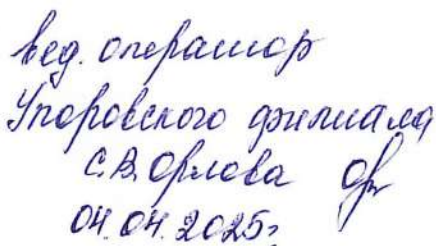 вед. оператор
Упоровского филиала
С.В. Орлова
04.04.2025г